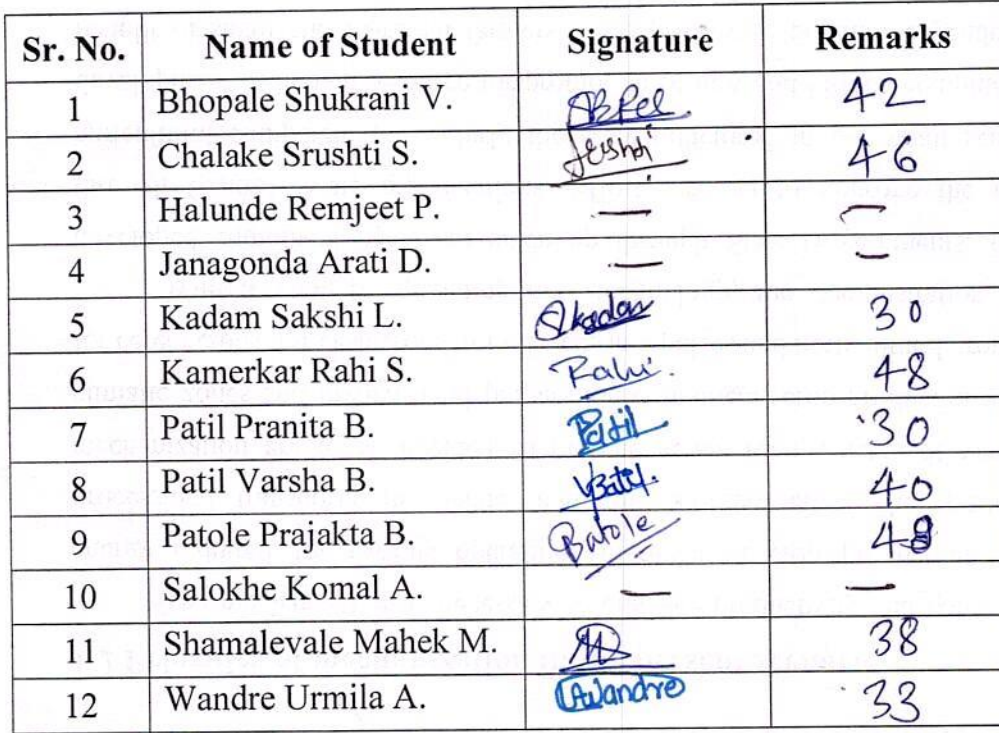 Sr. No. Name of Student Signature Remarks
1 Bhopale Shukrani V. 42
2 Chalake Srushti S. 46
3 Halunde Remjeet P. — —
4 Janagonda Arati D. — —
5 Kadam Sakshi L. Skadam 30
6 Kamerkar Rahi S. Rahi. 48
7 Patil Pranita B. Patil 30
8 Patil Varsha B. VBPatil. 40
9 Patole Prajakta B. Patole 48
10 Salokhe Komal A. — —
11 Shamalevale Mahek M. 38
12 Wandre Urmila A. UWandre 33